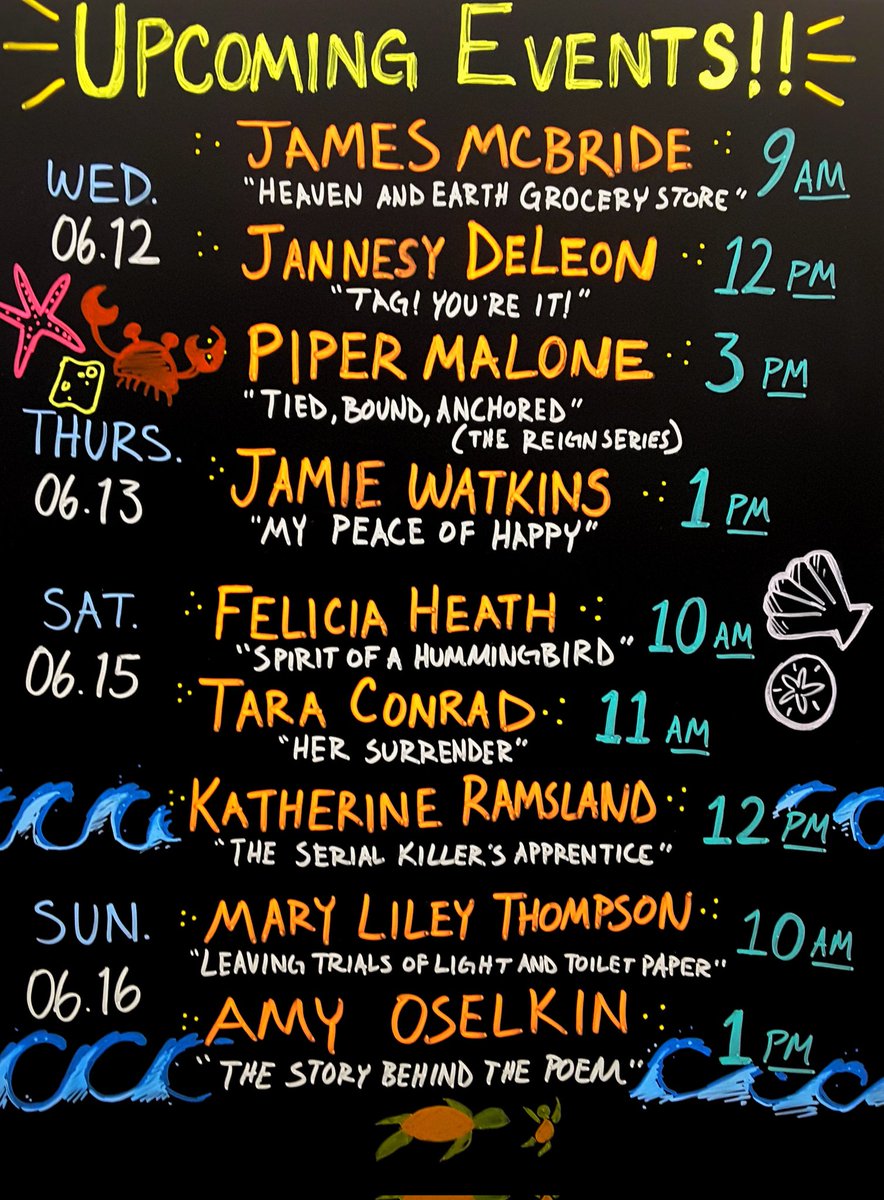 UPCOMING EVENTS!!
WED.
06.12
JAMES MCBRIDE 9 AM
"HEAVEN AND EARTH GROCERY STORE"
JANNESY DELEON 12 PM
"TAG! YOU'RE IT!"
PIPER MALONE 3 PM
"TIED, BOUND, ANCHORED"
(THE REIGN SERIES)
THURS.
06.13
JAMIE WATKINS 1 PM
"MY PEACE OF HAPPY"
SAT.
06.15
FELICIA HEATH 10 AM
"SPIRIT OF A HUMMINGBIRD"
TARA CONRAD 11 AM
"HER SURRENDER"
KATHERINE RAMSLAND 12 PM
"THE SERIAL KILLER'S APPRENTICE"
SUN.
06.16
MARY LILEY THOMPSON 10 AM
"LEAVING TRIALS OF LIGHT AND TOILET PAPER"
AMY OSELKIN 1 PM
"THE STORY BEHIND THE POEM"